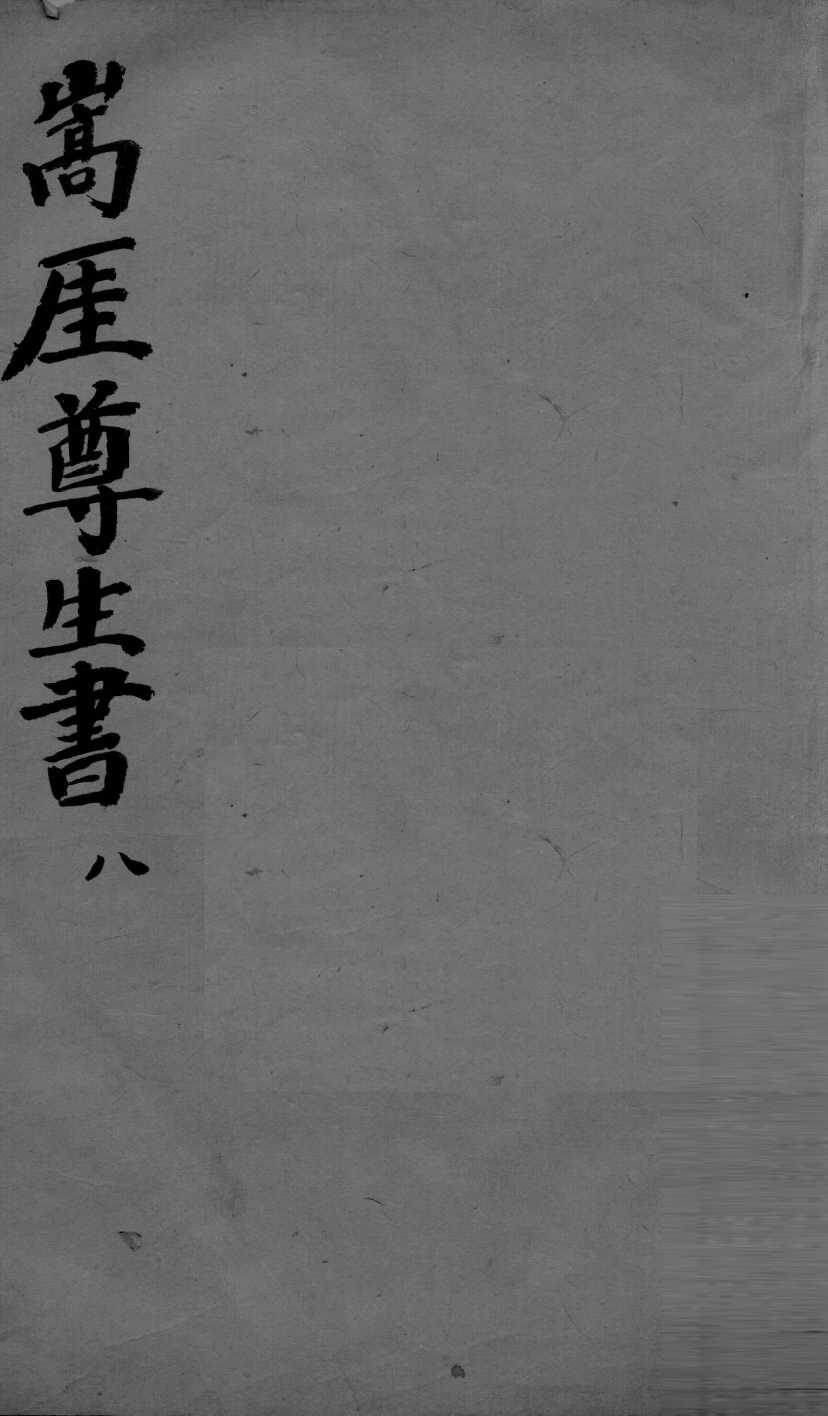 嵩厓尊生書 八